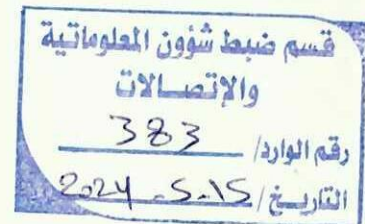 قسم ضبط شؤون المعلوماتية
والإتصالات
رقم الوارد/ 383
التاريخ / 2024 - 5 - 15